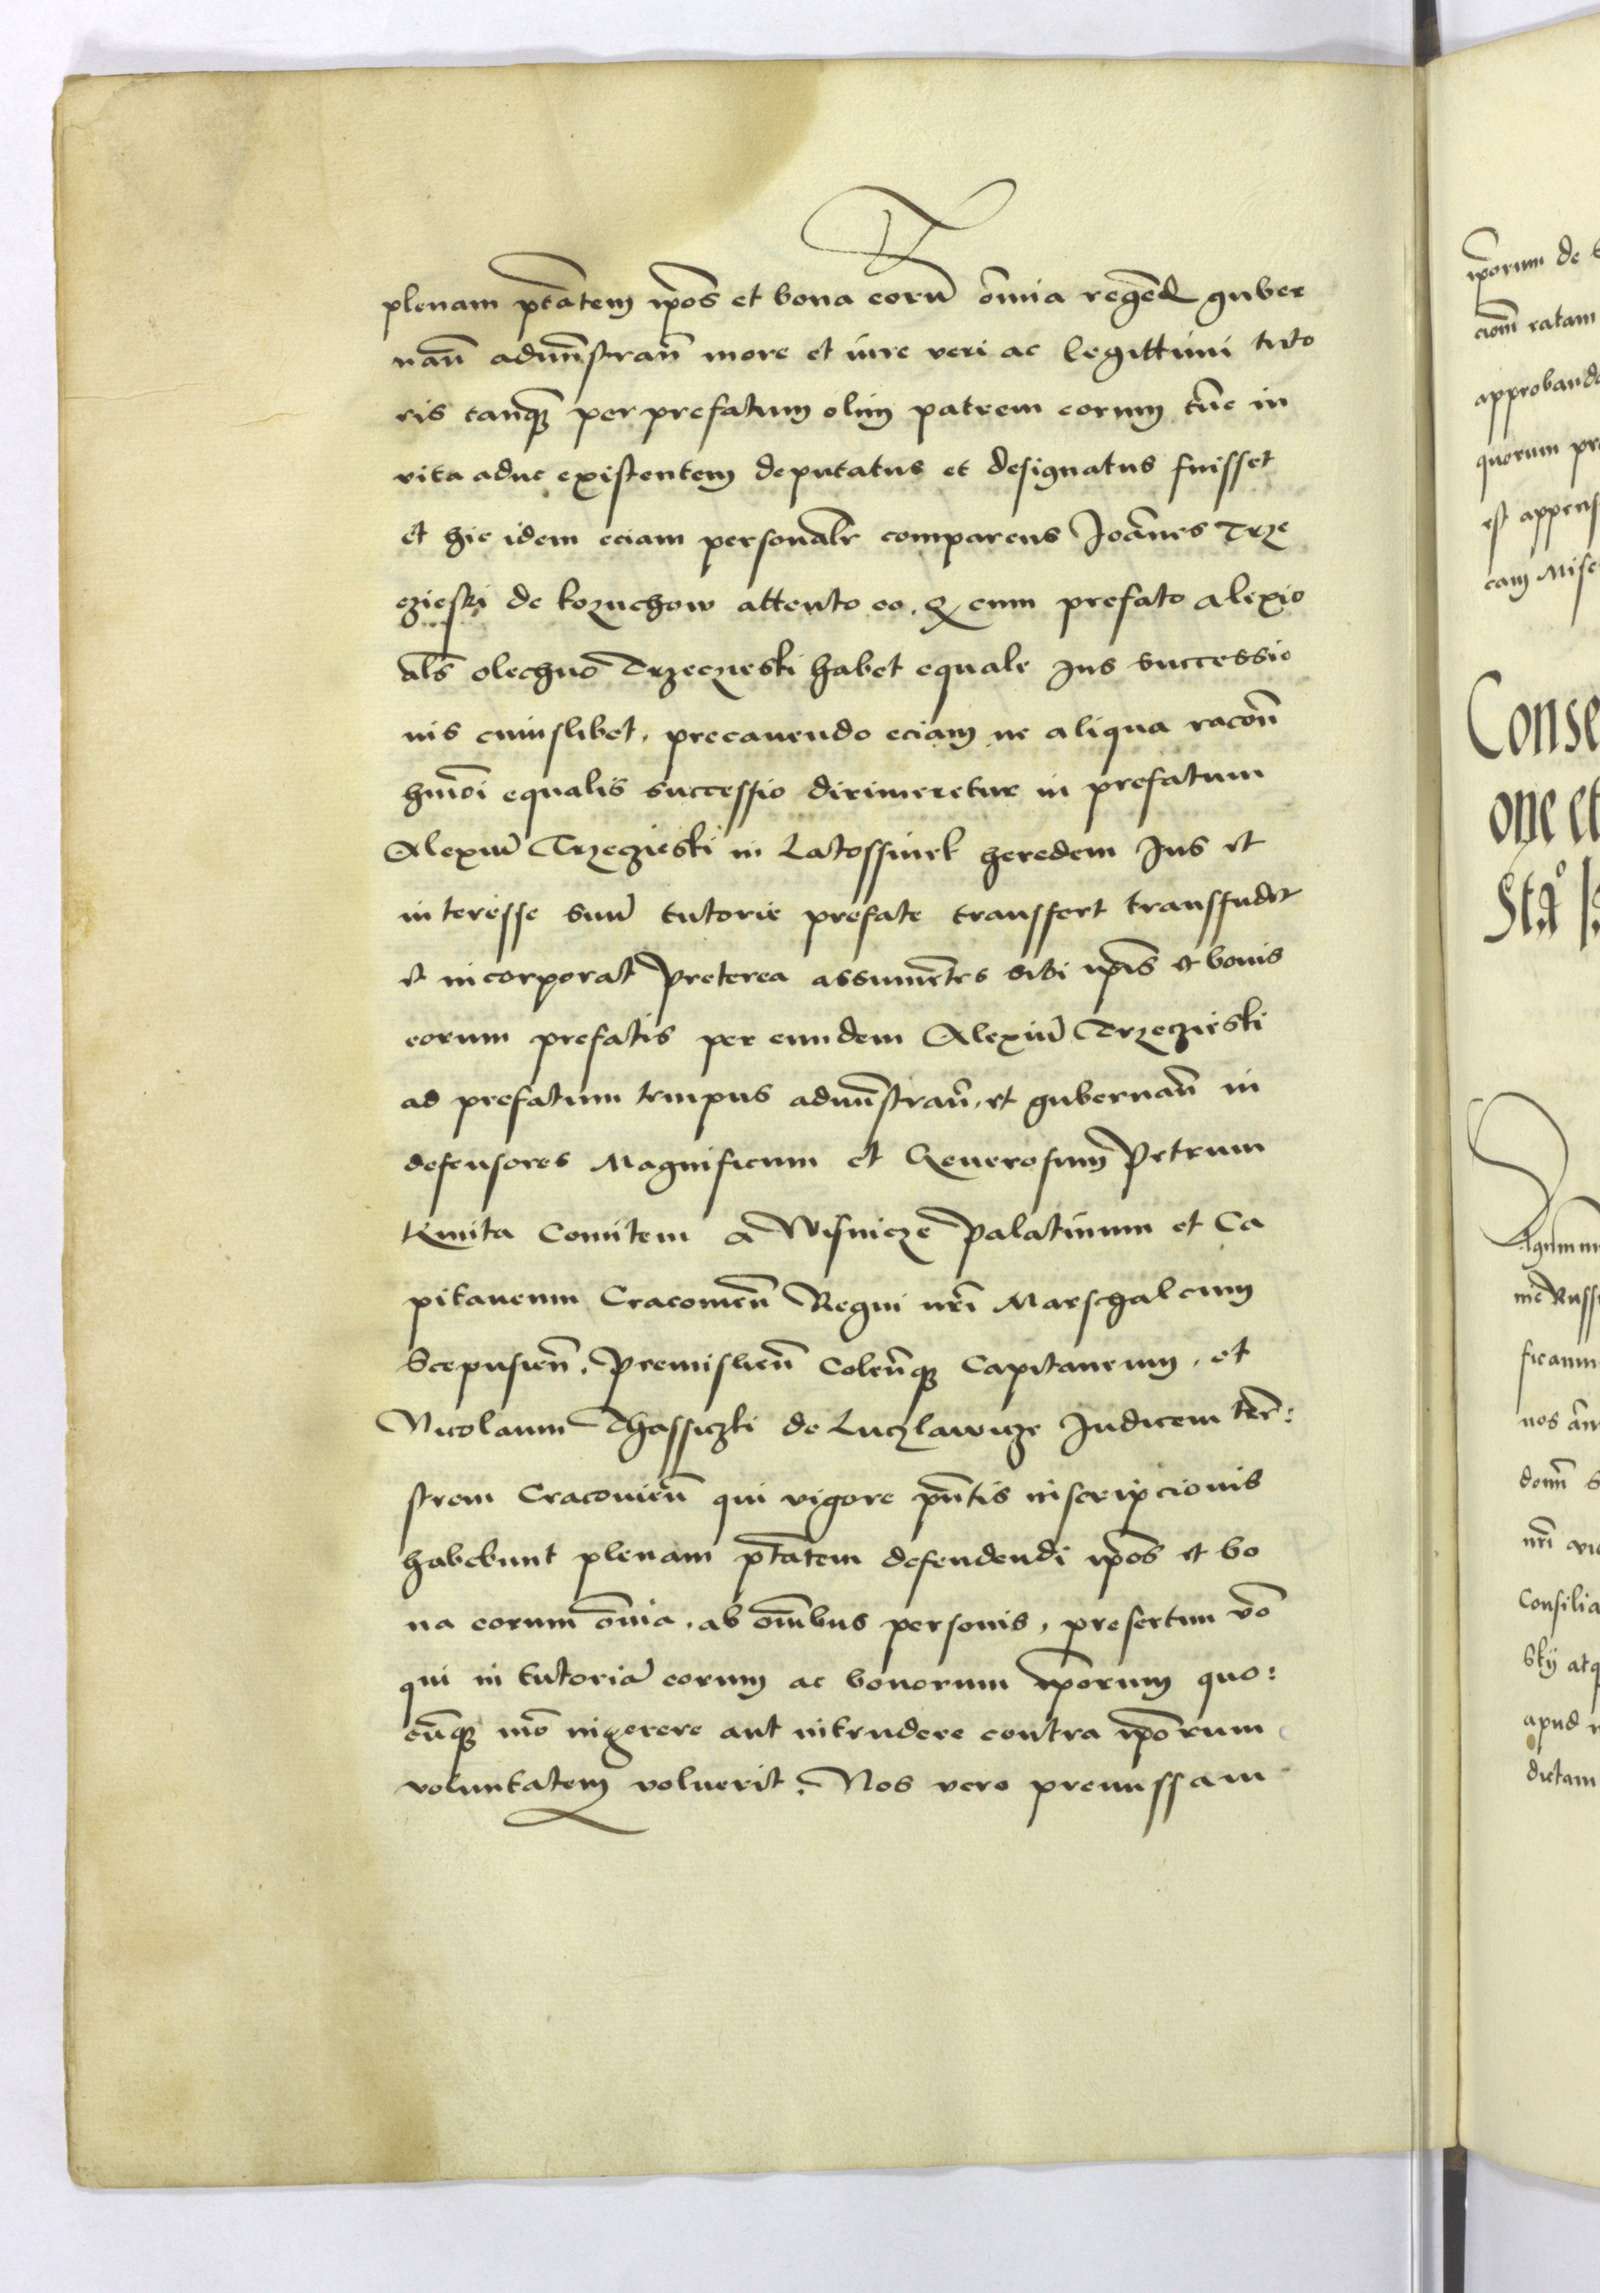 plenam ptātem ipōs et bona eorū om̄ia regēd guber
nan̄ admn̄stran̄ more et iure veri ac legittimi tuto
ris tanq̃ per prefatum olim patrem eorum tūc in
vita aduc existentem deputatus et designatus fuisset
et hic idem eciam personalr comparens Joānes Trze
czieski de kozuchow attento eo, q cum prefato Alexio
als olechno Trzeczieski habet equale Jus successio
nis cuiuslibet, precauendo eciam ne aliqua racōn
hmōi equalis successio dirimeretur in prefatum
Alexiū Trzeczieski in Latossinek heredem Jus et
interesse suū tutorie prefate transfert transfudit
et incorporat Preterea assumētes sibi ipīs et bonis
eorum prefatis per eundem Alexiū Trzeczieski
ad prefatum tempus admn̄stran̄, et gubernan̄ in
defensores Magnificum et Generosum Petrum
Kmita Comitem a Wisnicze Palatinum et Ca
pitaneum Cracouien̄ Regni nr̄i Marschalcum
Scepusien̄, Premislien̄ Colen̄q̃ Capitaneum, et
Nicolaum Thassiczki de Luczlawicze Judicem terr̄:
strem Cracouien̄ qui vigore pn̄tis inscripcionis
habebunt plenam ptātem defendendi ipōs et bo
na eorum om̄ia, ab om̄ibus personis, presertim vō
qui in tutoriā eorum ac bonorum ipōrum quo:
cūq̃ mō ingerere aut intrudere contra ipōrum
voluntatem voluerit, Nos vero premissam
ipōrum de
cionem̄ ratam
approband
quorum pr
est appens
cam Mise
Conse
one et
Sta
ficamus
nos
Consilia
sky atq
apud
dictam